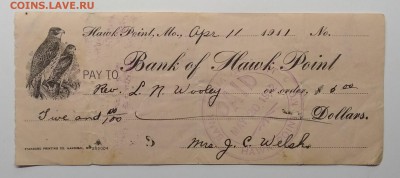 COINS.LAVE.RU
Hawk Point, Mo., Apr 11 1911 No.
Bank of Hawk Point
PAY TO
Rev. L. N. Wooley or order, $ 5.00
Five and 00/100 Dollars.
Mrs. J. C. Welsh
PAID